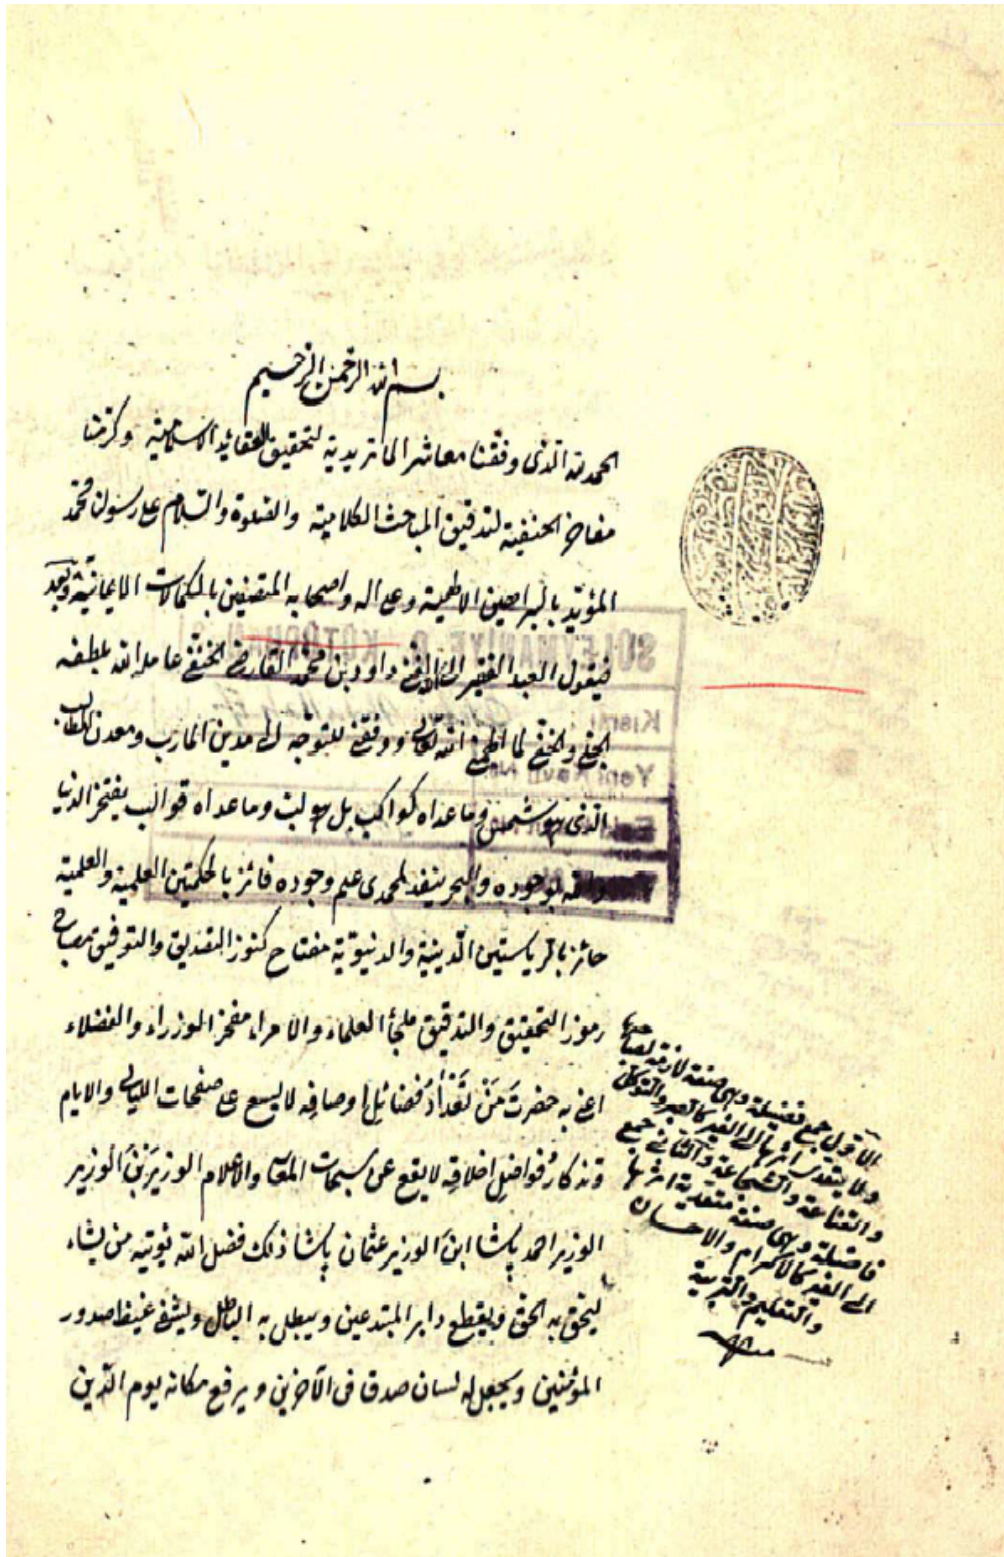 بسم الله الرحمن الرحيم
الحمد لله الذى وفقنا معاشر الماتريدية لتحقيق العقائد الاسلامية وكرمنا
مفاخر الحنفية لتدقيق المباحث الكلامية والصلوة والسلام على رسولنا محمد
المؤيد بالبراهين وعلى اله واصحابه المتصفين بالكمالات الايمانية وبعد
فيقول العبد الفقير داود بن محمد القارصى الحنفى عامله الله بلطفه
الجلى والخفى لما الله تعالى ووفقنى للتوجه الى مدين المآرب ومعدن المطالب
الذى هو شمس وما عداه كواكب بل هو لب وما عداه قوالب يفتخر الدنيا
بوجوده والبحر ينفد وجوده فائز بالحكمتين العلمية والعملية
حائز بالرياستين الدينية والدنيوية مفتاح كنوز التصديق والتوفيق مصباح
رموز التحقيق والتدقيق ملجأ العلماء والامراء مفخر الوزراء والفضلاء
اعنى به حضرت من تعداد فضائل اوصافه لا يسع على صفحات الليالى والايام
وتذكار فواضل اخلاقه لا يقع على والاعلام الوزير بن الوزير
الوزير احمد پاشا ابن الوزير عثمان پاشا ذلك فضل الله يؤتيه من يشاء
ليحق به الحق ويقطع دابر المبتدعين ويبطل به الباطل ويشفى غيظ صدور
المؤمنين ويجعل له لسان صدق فى الآخرين ويرفع مكانه يوم الدين
الاول جمع فضيلة وهى صفة لازمة لصاحبها
ولا يتعدى اثرها الى الغير كالصبر والتوكل
والقناعة والشجاعة والثانى جمع
فاضلة وهى صفة متعدية اثرها
الى الغير كالاكرام والاحسان
والتعليم والتربية
منه
SÜLEYMANİYE G. KÜTÜPHANESİ
Kısmı
Yeni Kayıt No.